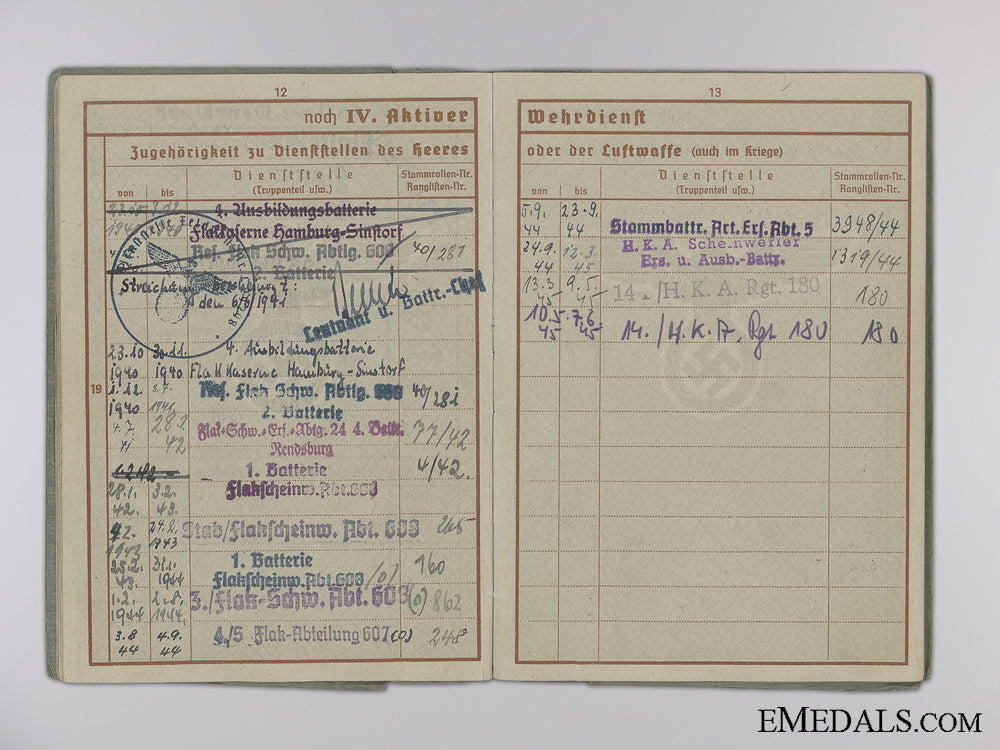 12
noch IV. Aktiver
Zugehörigkeit zu Dienststellen des Heeres
von
bis
Dienststelle
(Truppenteil usw.)
Stammrollen-Nr.
Ranglisten-Nr.
4. Ausbildungsbatterie
Flakkaserne Hamburg-Sinstorf
Res. Flak Schw. Abtlg. 603 40/281
2. Batterie
Streichung
den 6/6 1941
Leutnant u. Battr.-Chef
19
23.10 30.11. 4. Ausbildungsbatterie
1940 1940 Flakkaserne Hamburg-Sinstorf
1.12. Res. Flak Schw. Abtlg. 603 40/281
1940 1941 2. Batterie
4.7. 28.1. Flak-Schw.-Ers.-Abtg. 24 4. Battr. 77/42
41 42 Rendsburg
1. Batterie 4/42.
28.1. 3.2. Flakscheinw. Abt. 603
42. 43.
24.2. Stab/Flakscheinw. Abt. 603 265
1943 1943
25.2. 31.1. 1. Batterie
43. 1944 Flakscheinw. Abt. 603 (o) 160
1.2. 2.8. 3./Flak-Schw. Abt. 603 (o) 862
1944 1944.
3.8 4.9. 4./S Flak-Abteilung 607 (o) 248
44 44
13
Wehrdienst
oder der Luftwaffe (auch im Kriege)
von
bis
Dienststelle
(Truppenteil usw.)
Stammrollen-Nr.
Ranglisten-Nr.
5.9. 23.9. Stammbattr. Art. Ers. Abt. 5 3948/44
44 44
24.9. 12.3. H.K.A. Scheinwerfer 1319/44
44 45 Ers. u. Ausb.-Battr.
13.3 9.5. 14./H. K. A. Rgt. 180 180
45 45
10.5. 7.6. 14./H.K.A. Rgt. 180 180
45 45
EMEDALS.COM